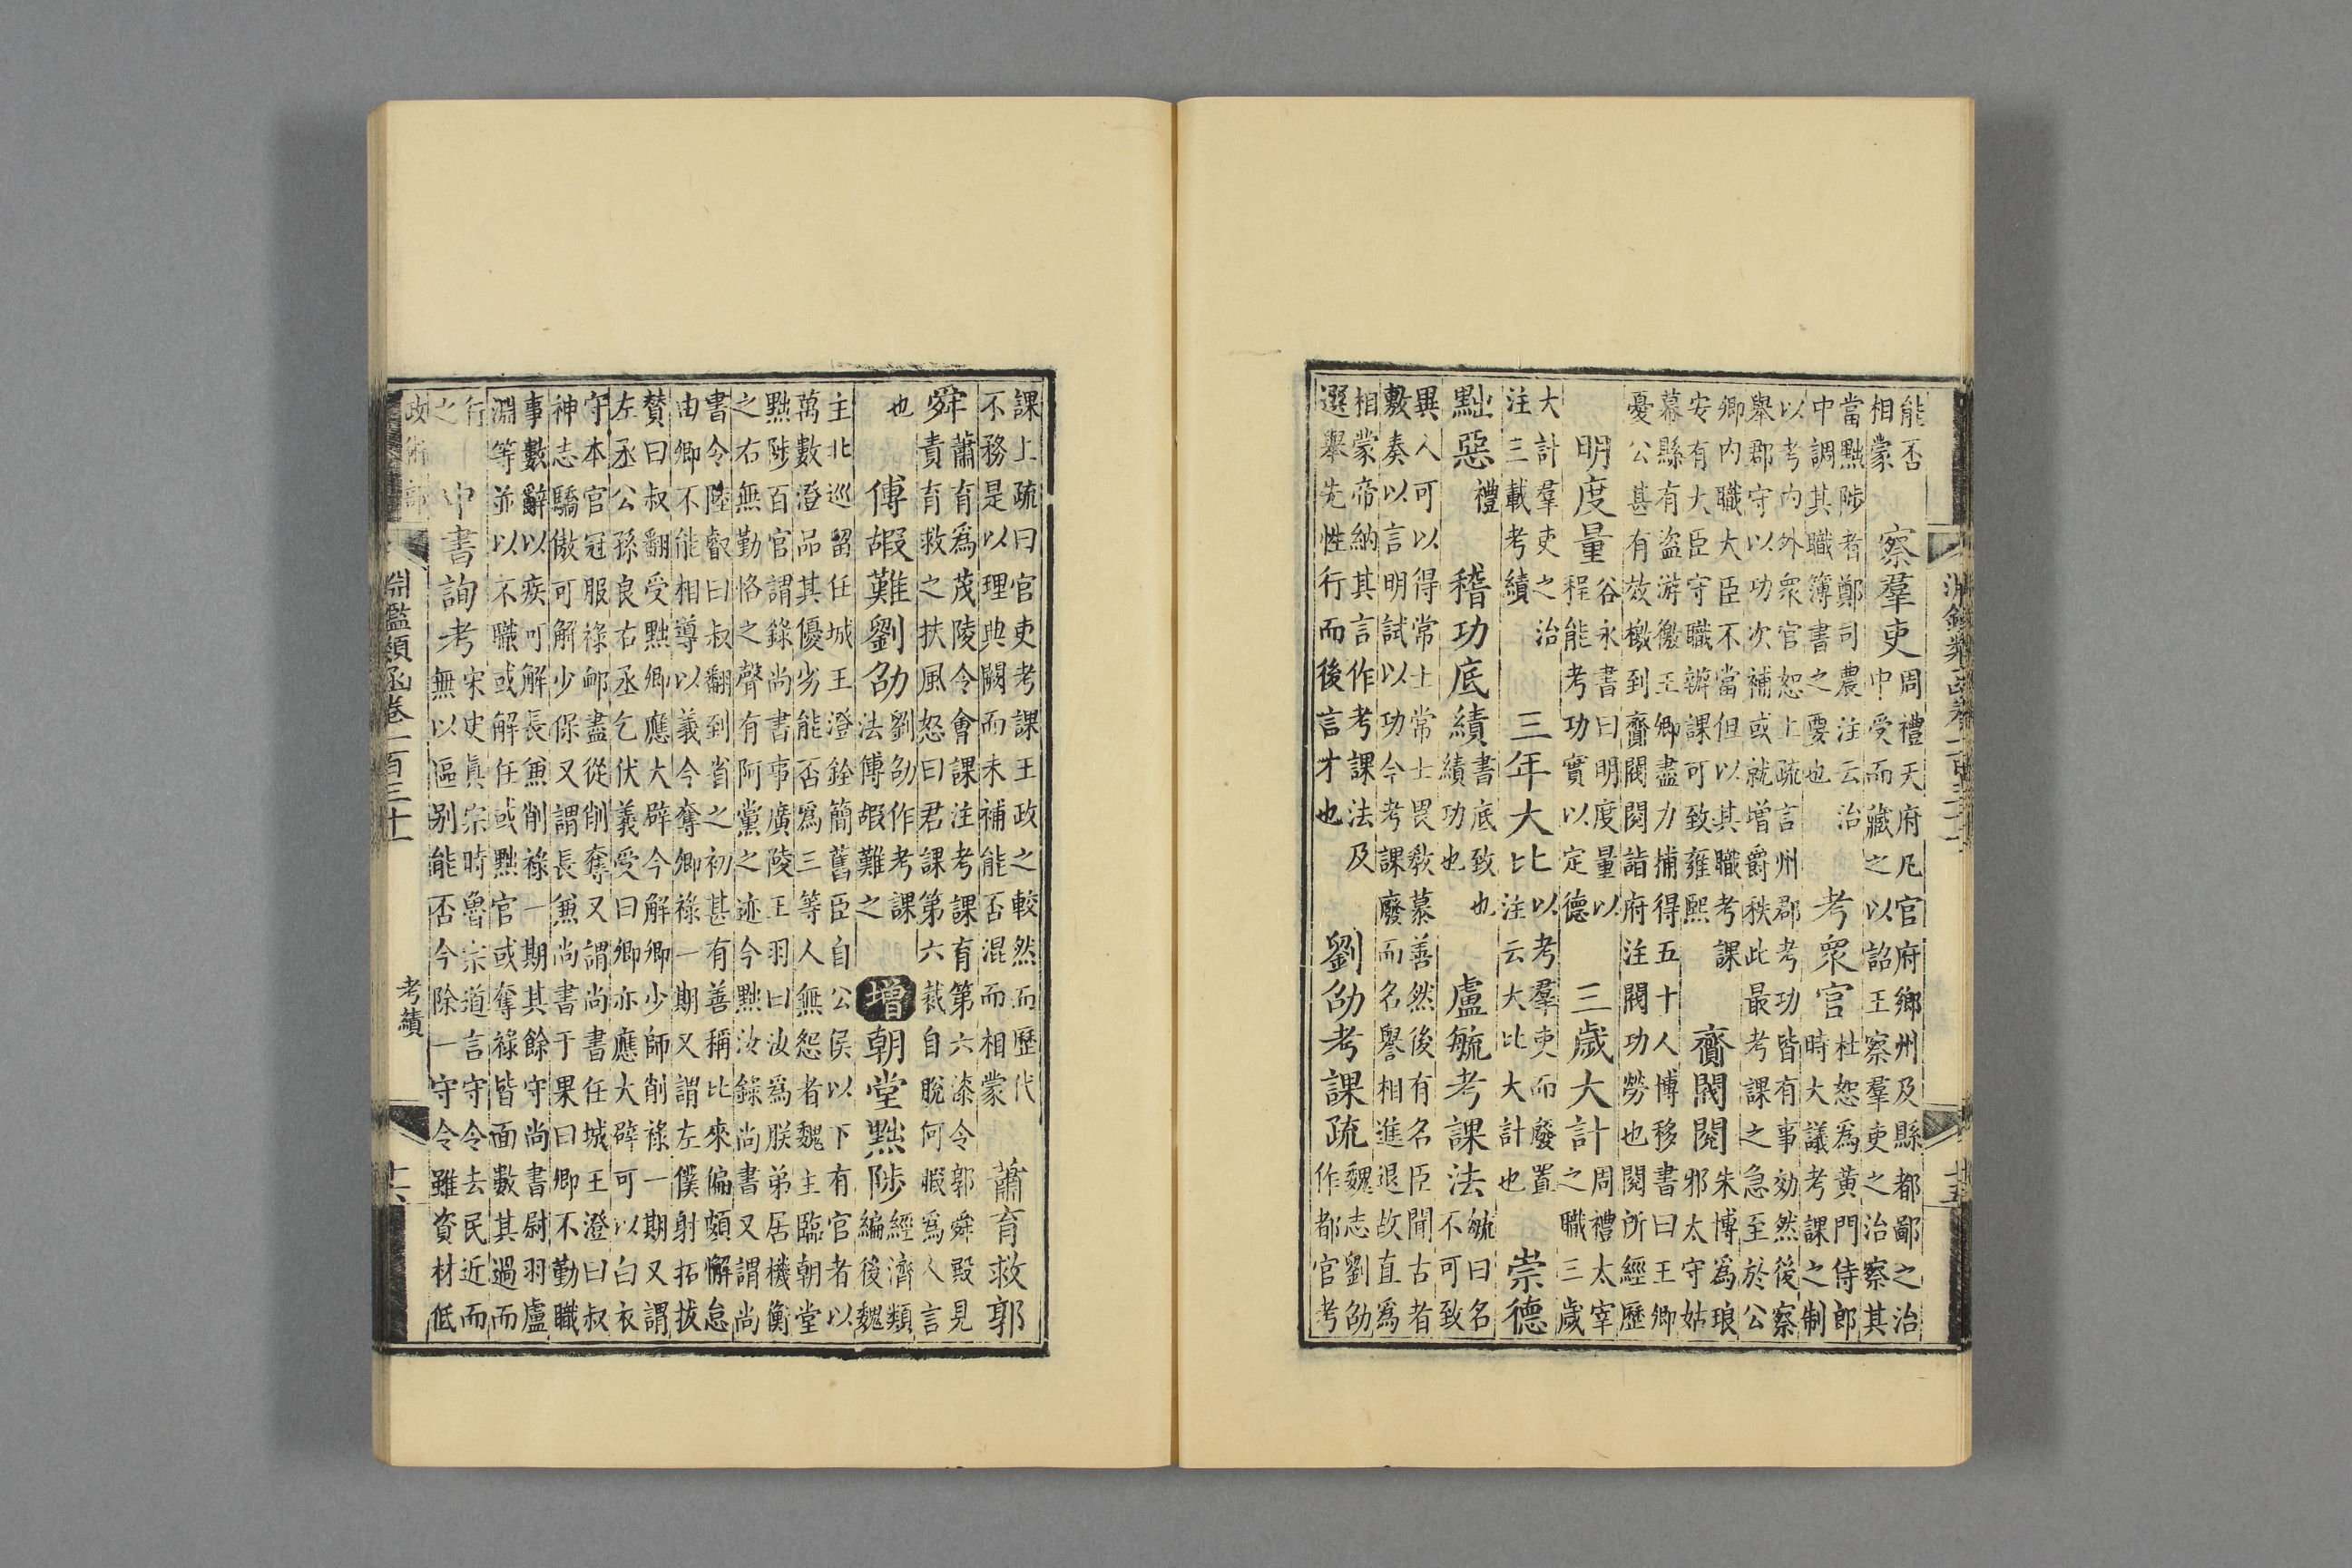 能否相蒙 察羣吏 周禮天府凡官府鄉州及縣都鄙之治中受而藏之以詔王察羣吏之治察其
當黜陟者鄭司農注云治中調其職簿書之要也 考衆官 杜恕為黃門侍郎時大議考課之制
以考內外衆官恕上疏言州郡考功皆有事効然後察舉郡守以功次補或就增爵秩此最考課之急至於公
卿內職大臣不當但以其職考課安有大臣守職辦課可致雍熙 齎閥閱 朱博為琅邪太守姑
幕縣有盗游徼王卿盡力捕得五十人博移書曰王卿憂公甚有效檄到齎閥閱詣府注閥功勞也閱所經歷
明度量 谷永書曰明度量以程能考功實以定德 三歲大計 周禮太宰之職三歲
大計羣吏之治注三載考績 三年大比 以考羣吏而廢置注云大比大計也 崇德
黜惡 禮也 稽功底績 書底致績功也 盧毓考課法 毓曰名不可致
異人可以得常士常士畏敎慕善然後有名臣聞古者敷奏以言明試以功今考課廢而名譽相進退故直為
相蒙帝納其言作考課法及選舉先性行而後言才也 劉劭考課疏 魏志劉劭作都官考
課上疏曰官吏考課王政之較然而歷代不務是以理典闕而未補能否混而相蒙 蕭育救郭
舜 蕭育為茂陵令會課注考課育第六漆令郭舜殿見責育救之扶風怒曰君課第六裁自脫何暇為人言
也 傅嘏難劉劭 劉劭作考課法傅嘏難之 增 朝堂黜陟 經濟類編後魏
主北巡留任城王澄銓簡舊臣自公侯以下有官者以萬數澄品其優劣能否為三等人無怨者魏主臨朝堂
黜陟百官謂錄尚書事廣陵王羽曰汝為朕弟居機衡之右無勤恪之聲有阿黨之迹今黜汝錄尚書又謂尚
書令陸叡曰叔翻到省之初甚有善稱比來偏頗懈怠由卿不能相導以義今奪卿祿一期又謂左僕射拓拔
贊曰叔翻受黜卿應大辟今解卿少師削祿一期又謂左丞公孫良右丞乞伏義受曰卿亦應大辟可以白衣
守本官冠服祿卹盡從削奪又謂尚書任城王澄曰叔神志驕傲可解少保又謂長兼尚書于果曰卿不勤職
事數辭以疾可解長兼削祿一期其餘守尚書尉羽盧淵等並以不職或解任或黜官或奪祿皆面數其過而
行之 中書詢考 宋史真宗時魯宗道言守令去民近而無以區别能否今除一守令雖資材低
政術部 淵鑑類函卷一百三十一 考績 十六